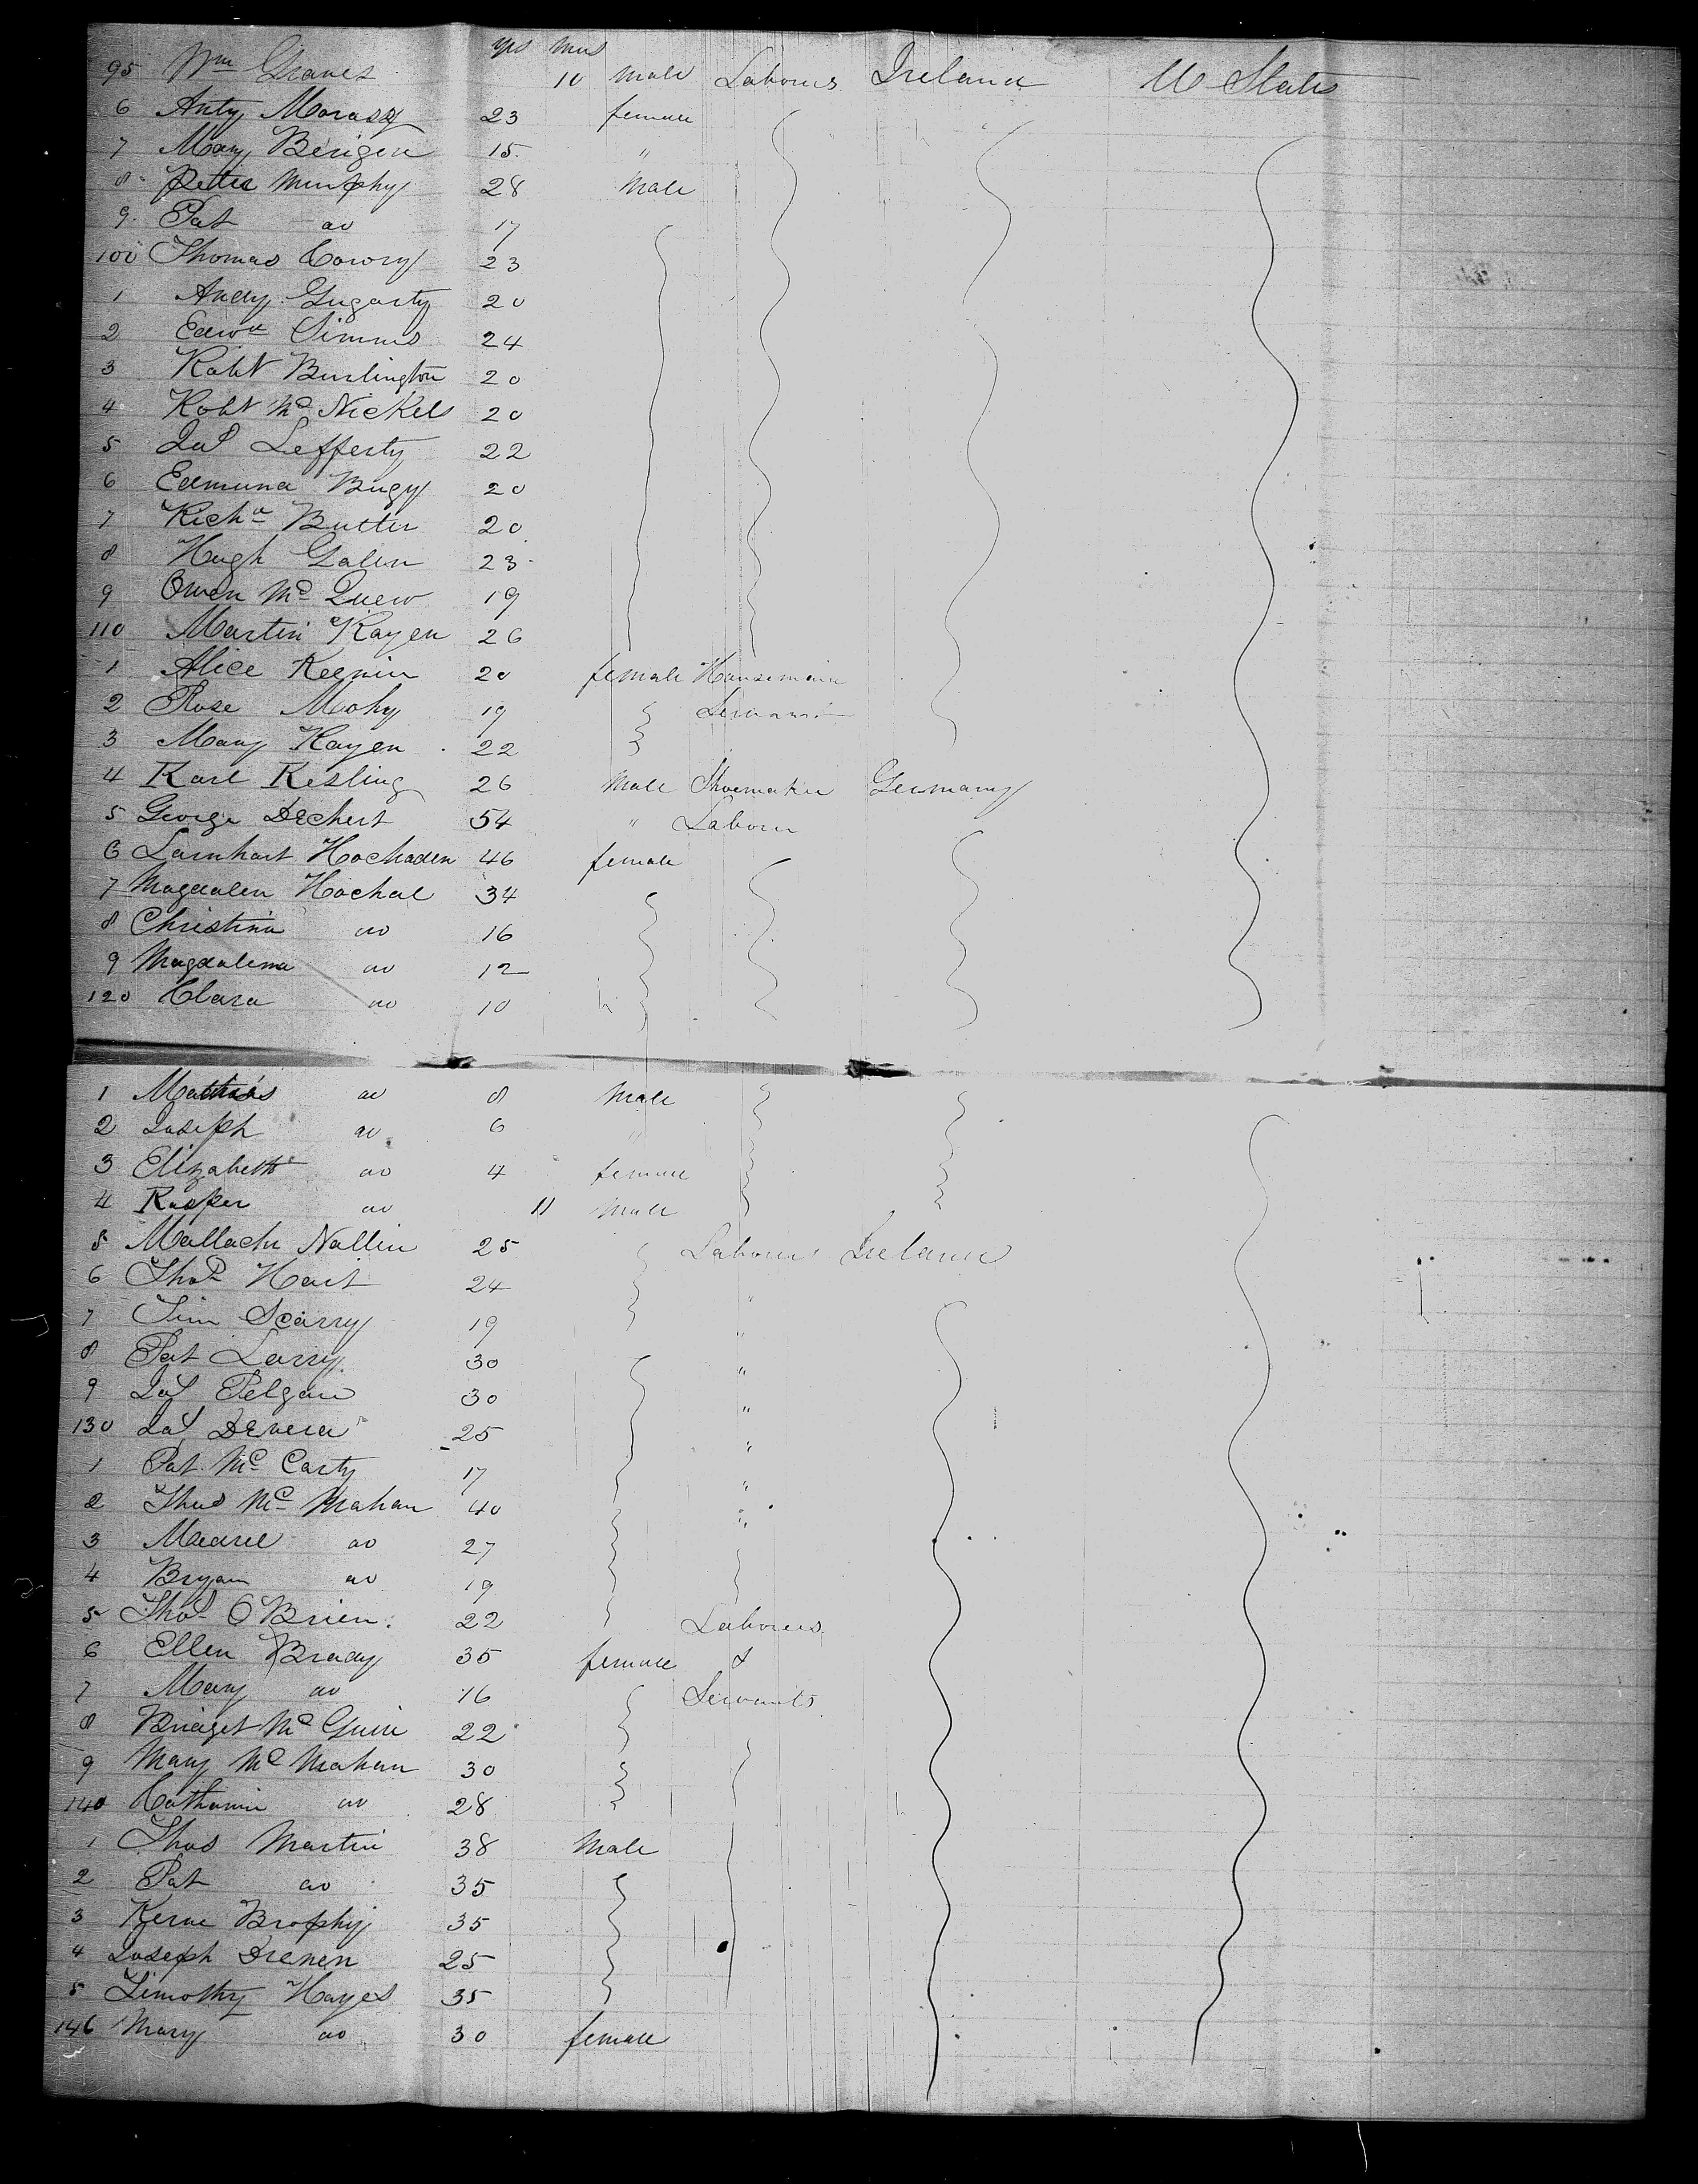 yrs mns
95 Wm Graves 10 Male Labourers Ireland U States
6 Anty Morassy 23 female
7 Mary Berigen 15 "
8 Peter Murphy 28 Male
9 Pat do 17
100 Thomas Cowry 23
1 Andy Gugarty 20
2 Edwd Simms 24
3 Robt Burlington 20
4 Robt Mc Nickels 20
5 Jas Lefferty 22
6 Edmund Bugy 20
7 Richd Butter 20
8 Hugh Galen 23
9 Owen Mc Quew 19
110 Martin Kayen 26
1 Alice Keenin 20 female Housemaid
2 Rose Mohy 19 Servant
3 Mary Kayen 22
4 Karl Kesling 26 Male Shoemaker Germany
5 George Dechert 54 " Laborer
6 Larnhart Hochaden 46 female
7 Magdalen Hochal 34
8 Christina do 16
9 Magdalena do 12
120 Clara do 10
1 Mathias do 8 Male
2 Joseph do 6 "
3 Elizabeth do 4 female
4 Kasper do 11 Male
5 Mallachi Nallin 25 Labourers Ireland
6 Thos Hart 24 "
7 Tim Scarry 19 "
8 Pat Larry 30 "
9 Jas Pelgan 30 "
130 Jas Devera 25 "
1 Pat Mc Carty 17 "
2 Thos Mc Mahan 40 "
3 do 27
4 Bryan do 19
5 Thos O Brien 22 Labourers
6 Ellen Brady 35 female &
7 Mary do 16 Servants
8 Bridget Mc Guire 22
9 Mary Mc Mahan 30
140 Catharine do 28
1 Thos Martin 38 Male
2 Pat do 35
3 Kerne Brophy 35
4 Joseph Drenen 25
5 Timothy Hayes 35
146 Mary do 30 female